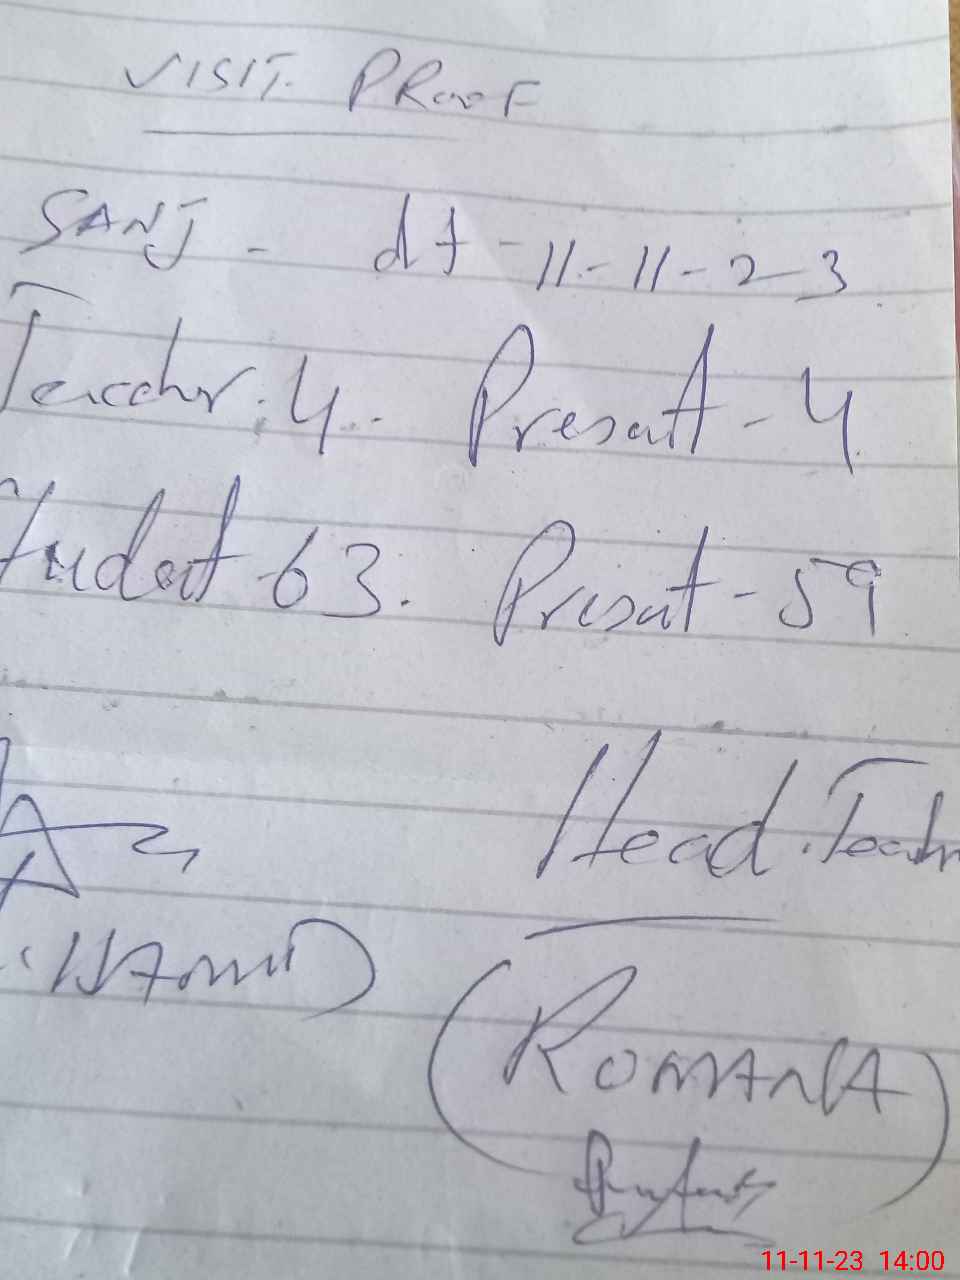 VISIT. PRooF
SANJ - dt - 11-11-23
Teacher. 4. Present - 4
Student - 63. Present - 59
Head. Teach
HAMID
(ROMANA)
11-11-23 14:00